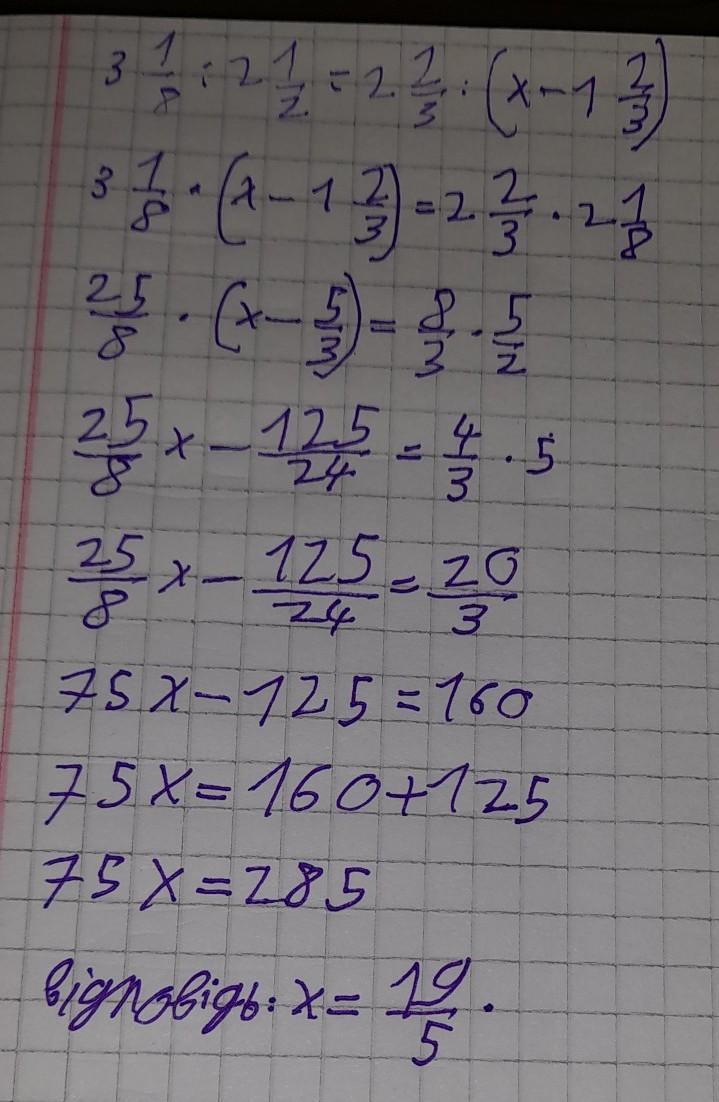 3 1/8 : 2 1/2 = 2 2/3 : (x - 1 2/3)
3 1/8 · (x - 1 2/3) = 2 2/3 · 2 1/8
25/8 · (x - 5/3) = 8/3 · 5/2
25/8 x - 125/24 = 4/3 · 5
25/8 x - 125/24 = 20/3
75x - 125 = 160
75x = 160 + 125
75x = 285
відповідь: x = 19/5.